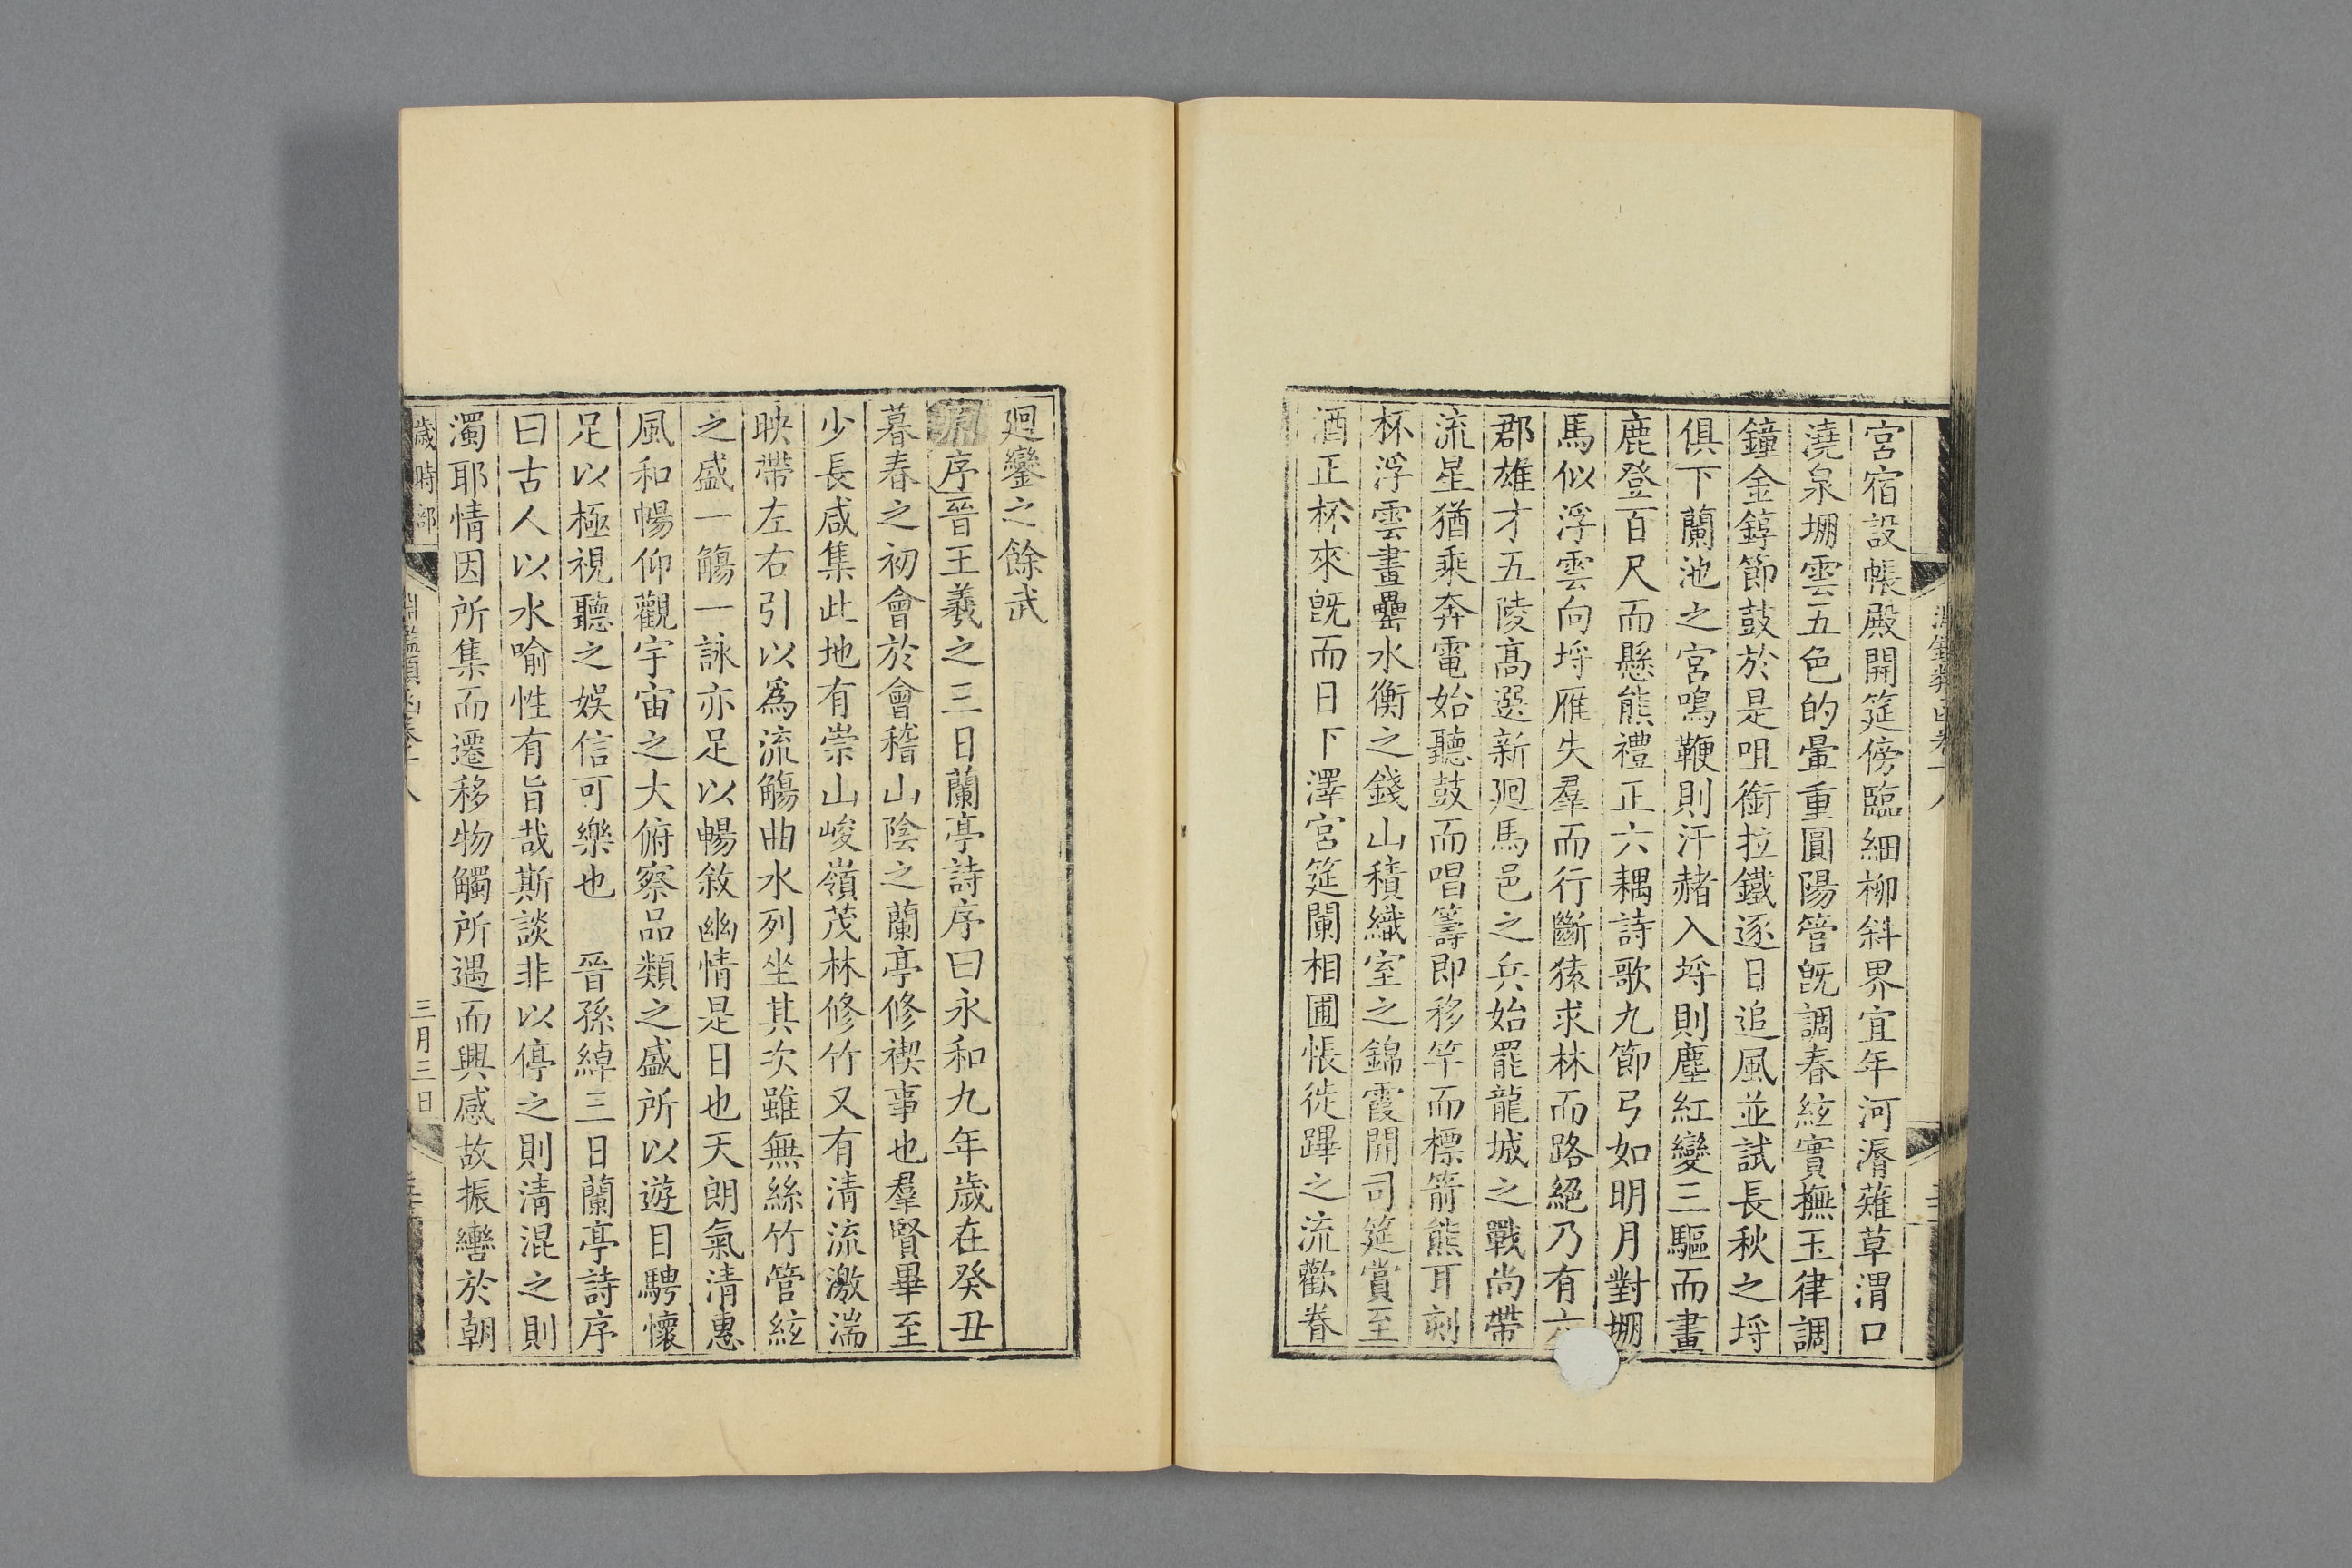 宮宿設帳殿開筵傍臨細柳斜界宜年河漘薙草渭口
澆泉堋雲五色的暈重圓陽管旣調春絃實撫玉律調
鐘金錞節鼓於是咀銜拉鐵逐日追風並試長秋之埒
俱下蘭池之宮鳴鞭則汗赭入埒則塵紅變三驅而畫
鹿登百尺而懸熊禮正六耦詩歌九節弓如明月對堋
馬似浮雲向埒雁失羣而行斷猿求林而路絕乃有六
郡雄才五陵高選新廻馬邑之兵始罷龍城之戰尚帶
流星猶乘奔電始聽鼓而唱籌即移竿而標箭熊耳刻
杯浮雲畫罍水衡之錢山積織室之錦霞開司筵賞至
酒正杯來旣而日下澤宮筵闌相圃悵徙蹕之流歡眷
廻鑾之餘武
原序晉王羲之三日蘭亭詩序曰永和九年歲在癸丑
暮春之初會於會稽山陰之蘭亭修禊事也羣賢畢至
少長咸集此地有崇山峻嶺茂林修竹又有清流激湍
映帶左右引以爲流觴曲水列坐其次雖無絲竹管絃
之盛一觴一詠亦足以暢敘幽情是日也天朗氣清惠
風和暢仰觀宇宙之大俯察品類之盛所以遊目騁懷
足以極視聽之娛信可樂也　晉孫綽三日蘭亭詩序
曰古人以水喻性有旨哉斯談非以停之則清混之則
濁耶情因所集而遷移物觸所遇而興感故振轡於朝
歲時部
淵鑑類函卷十八
三月三日